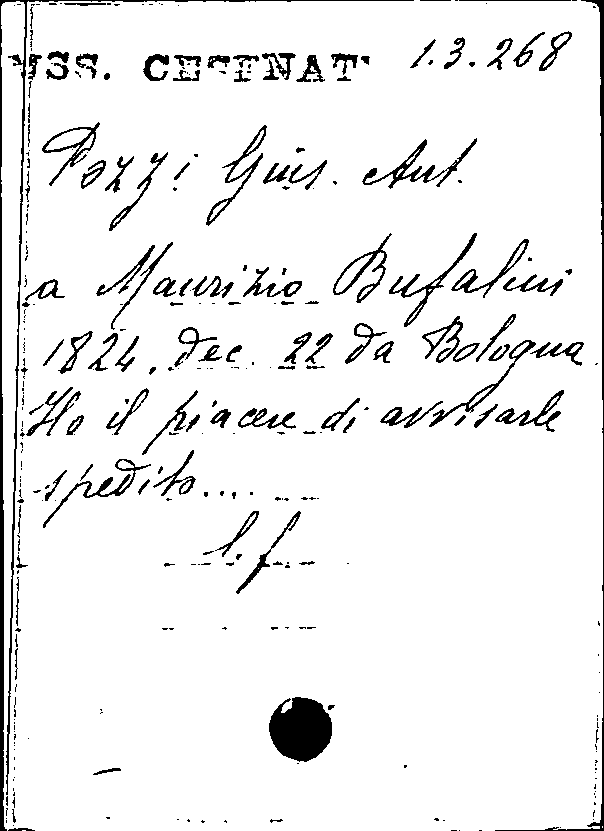 MSS. CESENATI 1.3.268
Pozzi Gius. Ant.
a Maurizio Bufalini
1824. dec. 22 da Bologna
Ho il piacere di avvisarle
spedito....
l. f.